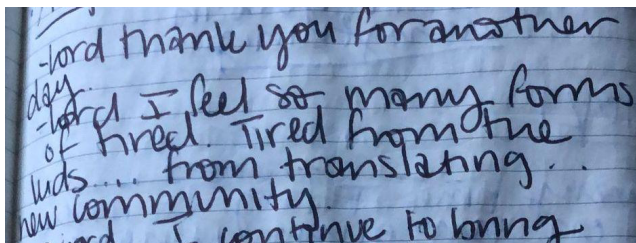 -Lord thank you for another
day.
-Lord I feel so many forms
of tired. Tired from the
luds.... from translating...
new community.
I continue to bring